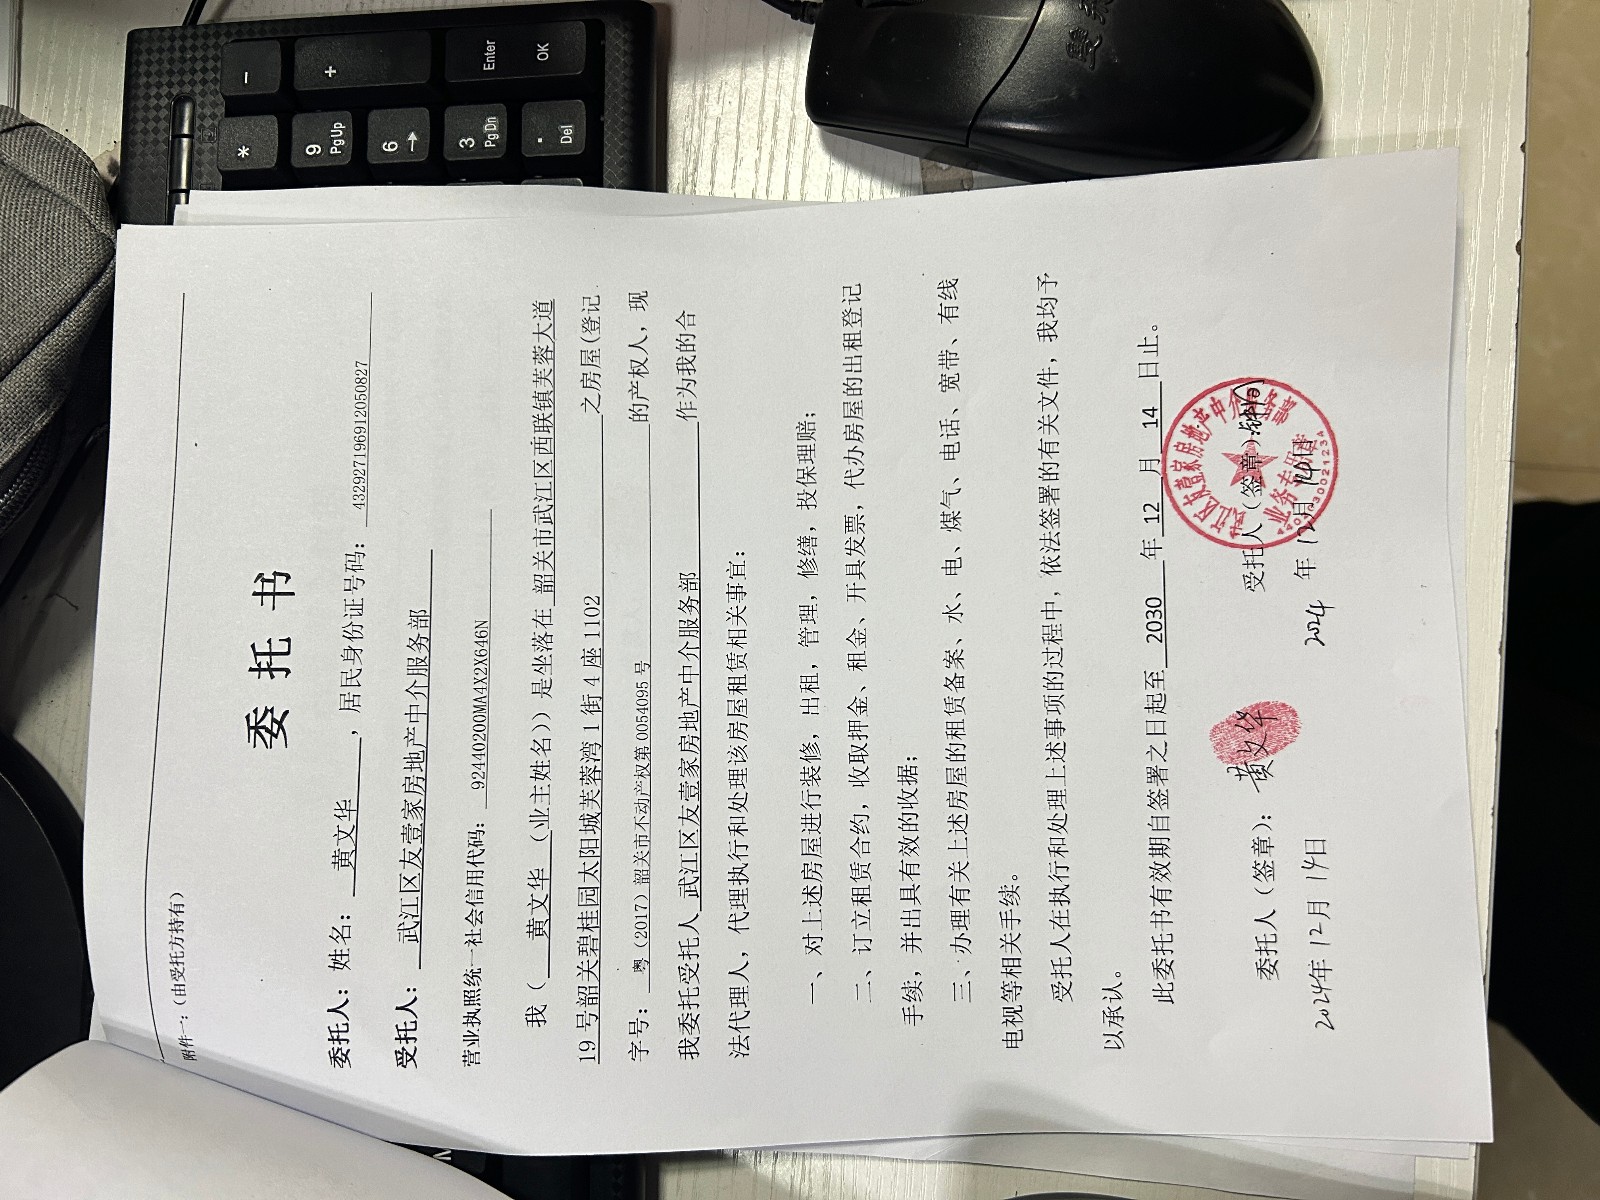 附件一：（由受托方持有）
委 托 书
委托人：姓名：黄文华，居民身份证号码：432927196912050827
受托人：武江区友壹家房地产中介服务部
营业执照统一社会信用代码：92440200MA4X2X646N
我（黄文华（业主姓名））是坐落在韶关市武江区西联镇芙蓉大道
19号韶关碧桂园太阳城芙蓉湾1街4座1102之房屋（登记
字号：粤（2017）韶关市不动产权第0054095号的产权人，现
我委托受托人武江区友壹家房地产中介服务部作为我的合
法代理人，代理执行和处理该房屋租赁相关事宜：
一、对上述房屋进行装修，出租，管理，修缮，投保理赔；
二、订立租赁合约，收取押金、租金、开具发票，代办房屋的出租登记
手续，并出具有效的收据；
三、办理有关上述房屋的租赁备案、水、电、煤气、电话、宽带、有线
电视等相关手续。
受托人在执行和处理上述事项的过程中，依法签署的有关文件，我均予
以承认。
此委托书有效期自签署之日起至2030年12月14日止。
委托人（签章）：黄文华
受托人（签章）：
2024年12月14日
2024年12月14日
武江区友壹家房地产中介服务部
业务专用章
-
+
Enter
OK
*
9
PgUp
6
→
3
PgDn
.
Del